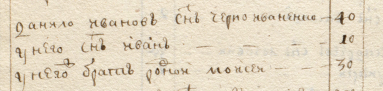 Данило Ивановъ Сн҃ъ Черноиваненко — 40
У него Сн҃ъ Иванъ — 10
У него братъ родной Моисеи — 30